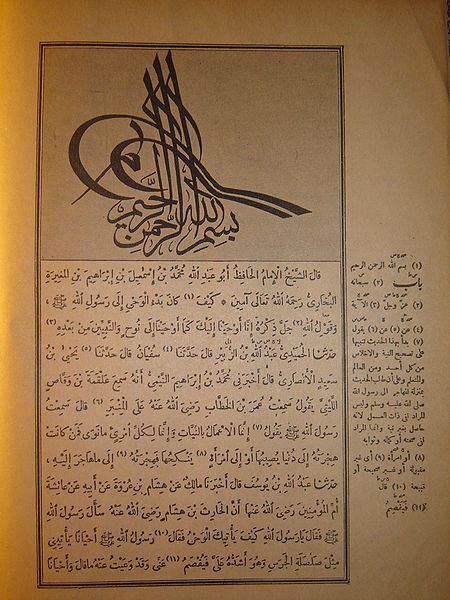 بسم الله الرحمن الرحيم
قال الشَّيْخُ الإِمَامُ الحَافِظُ أَبُو عَبْدِ اللهِ مُحَمَّدُ بْنُ إِسْمٰعِيلَ بْنِ إِبْرَاهِيمَ بْنِ المُغِيرَةِ
البُخَارِىُّ رَحِمَهُ اللهُ تَعَالَى آمِينَ * كَيْفَ (١) كَانَ بَدْءُ الْوَحْىِ إِلَى رَسُولِ اللهِ ﷺ
وَقَوْلُ اللهِ (٢) جَلَّ ذِكْرُهُ إِنَّا أَوْحَيْنَا إِلَيْكَ كَمَا أَوْحَيْنَا إِلَى نُوحٍ وَالنَّبِيِّينَ مِنْ بَعْدِهِ (٣)
حَدَّثَنَا الْحُمَيْدِىُّ عَبْدُ اللهِ بْنُ الزُّبَيْرِ قَالَ حَدَّثَنَا (٤) سُفْيَانُ قَالَ حَدَّثَنَا (٥) يَحْيَى بْنُ
سَعِيدٍ الأَنْصَارِىُّ قَالَ أَخْبَرَنِى مُحَمَّدُ بْنُ إِبْرَاهِيمَ التَّيْمِىُّ أَنَّهُ سَمِعَ عَلْقَمَةَ بْنَ وَقَّاصٍ
اللَّيْثِىَّ يَقُولُ سَمِعْتُ عُمَرَ بْنَ الْخَطَّابِ رَضِىَ اللهُ عَنْهُ عَلَى الْمِنْبَرِ (٦) قَالَ سَمِعْتُ
رَسُولَ اللهِ ﷺ يَقُولُ (٧) إِنَّمَا الأَعْمَالُ بِالنِّيَّاتِ وَإِنَّمَا لِكُلِّ امْرِئٍ مَا نَوَى فَمَنْ كَانَتْ
هِجْرَتُهُ إِلَى دُنْيَا يُصِيبُهَا أَوْ إِلَى امْرَأَةٍ (٨) يَنْكِحُهَا فَهِجْرَتُهُ (٩) إِلَى مَا هَاجَرَ إِلَيْهِ *
حَدَّثَنَا عَبْدُ اللهِ بْنُ يُوسُفَ قَالَ أَخْبَرَنَا مَالِكٌ عَنْ هِشَامِ بْنِ عُرْوَةَ عَنْ أَبِيهِ عَنْ عَائِشَةَ
أُمِّ الْمُؤْمِنِينَ رَضِىَ اللهُ عَنْهَا أَنَّ الْحَارِثَ بْنَ هِشَامٍ رَضِىَ اللهُ عَنْهُ سَأَلَ رَسُولَ اللهِ
ﷺ فَقَالَ يَا رَسُولَ اللهِ كَيْفَ يَأْتِيكَ الْوَحْىُ فَقَالَ (١٠) رَسُولُ اللهِ ﷺ أَحْيَانًا يَأْتِينِى
مِثْلَ صَلْصَلَةِ الْجَرَسِ وَهُوَ أَشَدُّهُ عَلَىَّ فَيُفْصَمُ (١١) عَنِّى وَقَدْ وَعَيْتُ عَنْهُ مَا قَالَ وَأَحْيَانًا
(١) بسم الله الرحمن الرحيم
باب (٢) سبحانه
(٣) عزّ وجلّ (٣) الآية
(٤) عن (٥) عن (٦) يقول
(٧) بدأ بهذا الحديث تنبيها
على تصحيح النية والاخلاص
من كل أحد من العالم
والمتعلم وعلى أن طالب الحديث
بمنزلة المهاجر الى رسول الله
صلى الله عليه وسلم وليس
المراد نفى ذات العمل لانه
حاصل بغير نية وانما المراد
نفى صحته أو كماله وثوابه
(٨) أو امرأة (٩) أى غير
مقبولة أو غير صحيحة أو
قبيحة (١٠) قال
(١١) فَيَفْصِمُ